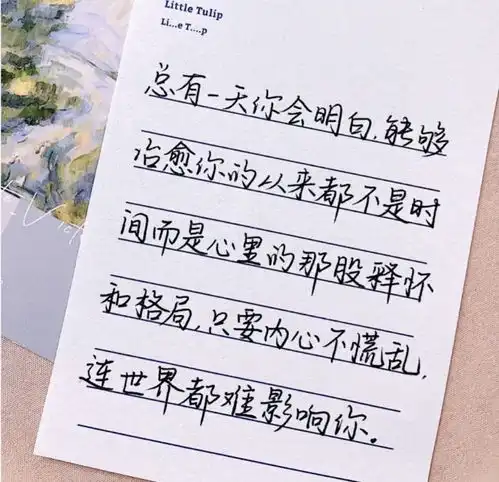 Little Tulip
Li...e T....p
总有一天你会明白,能够
治愈你的从来都不是时
间而是心里的那股释怀
和格局,只要内心不慌乱,
连世界都难影响你。